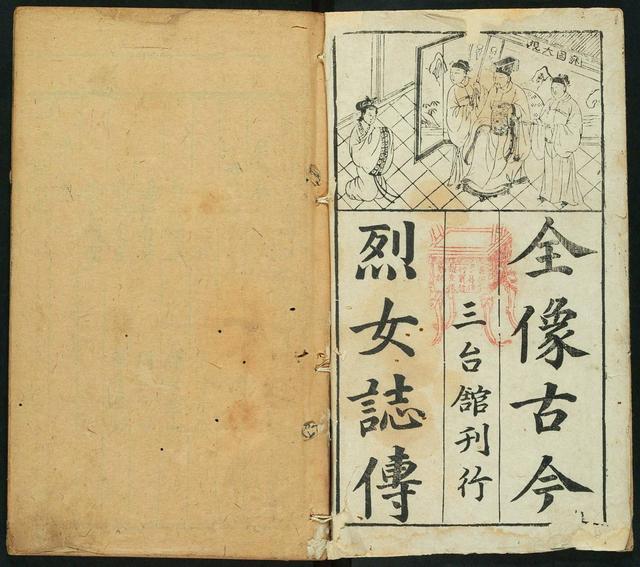 全像古今
三台館刊行
烈女誌傳